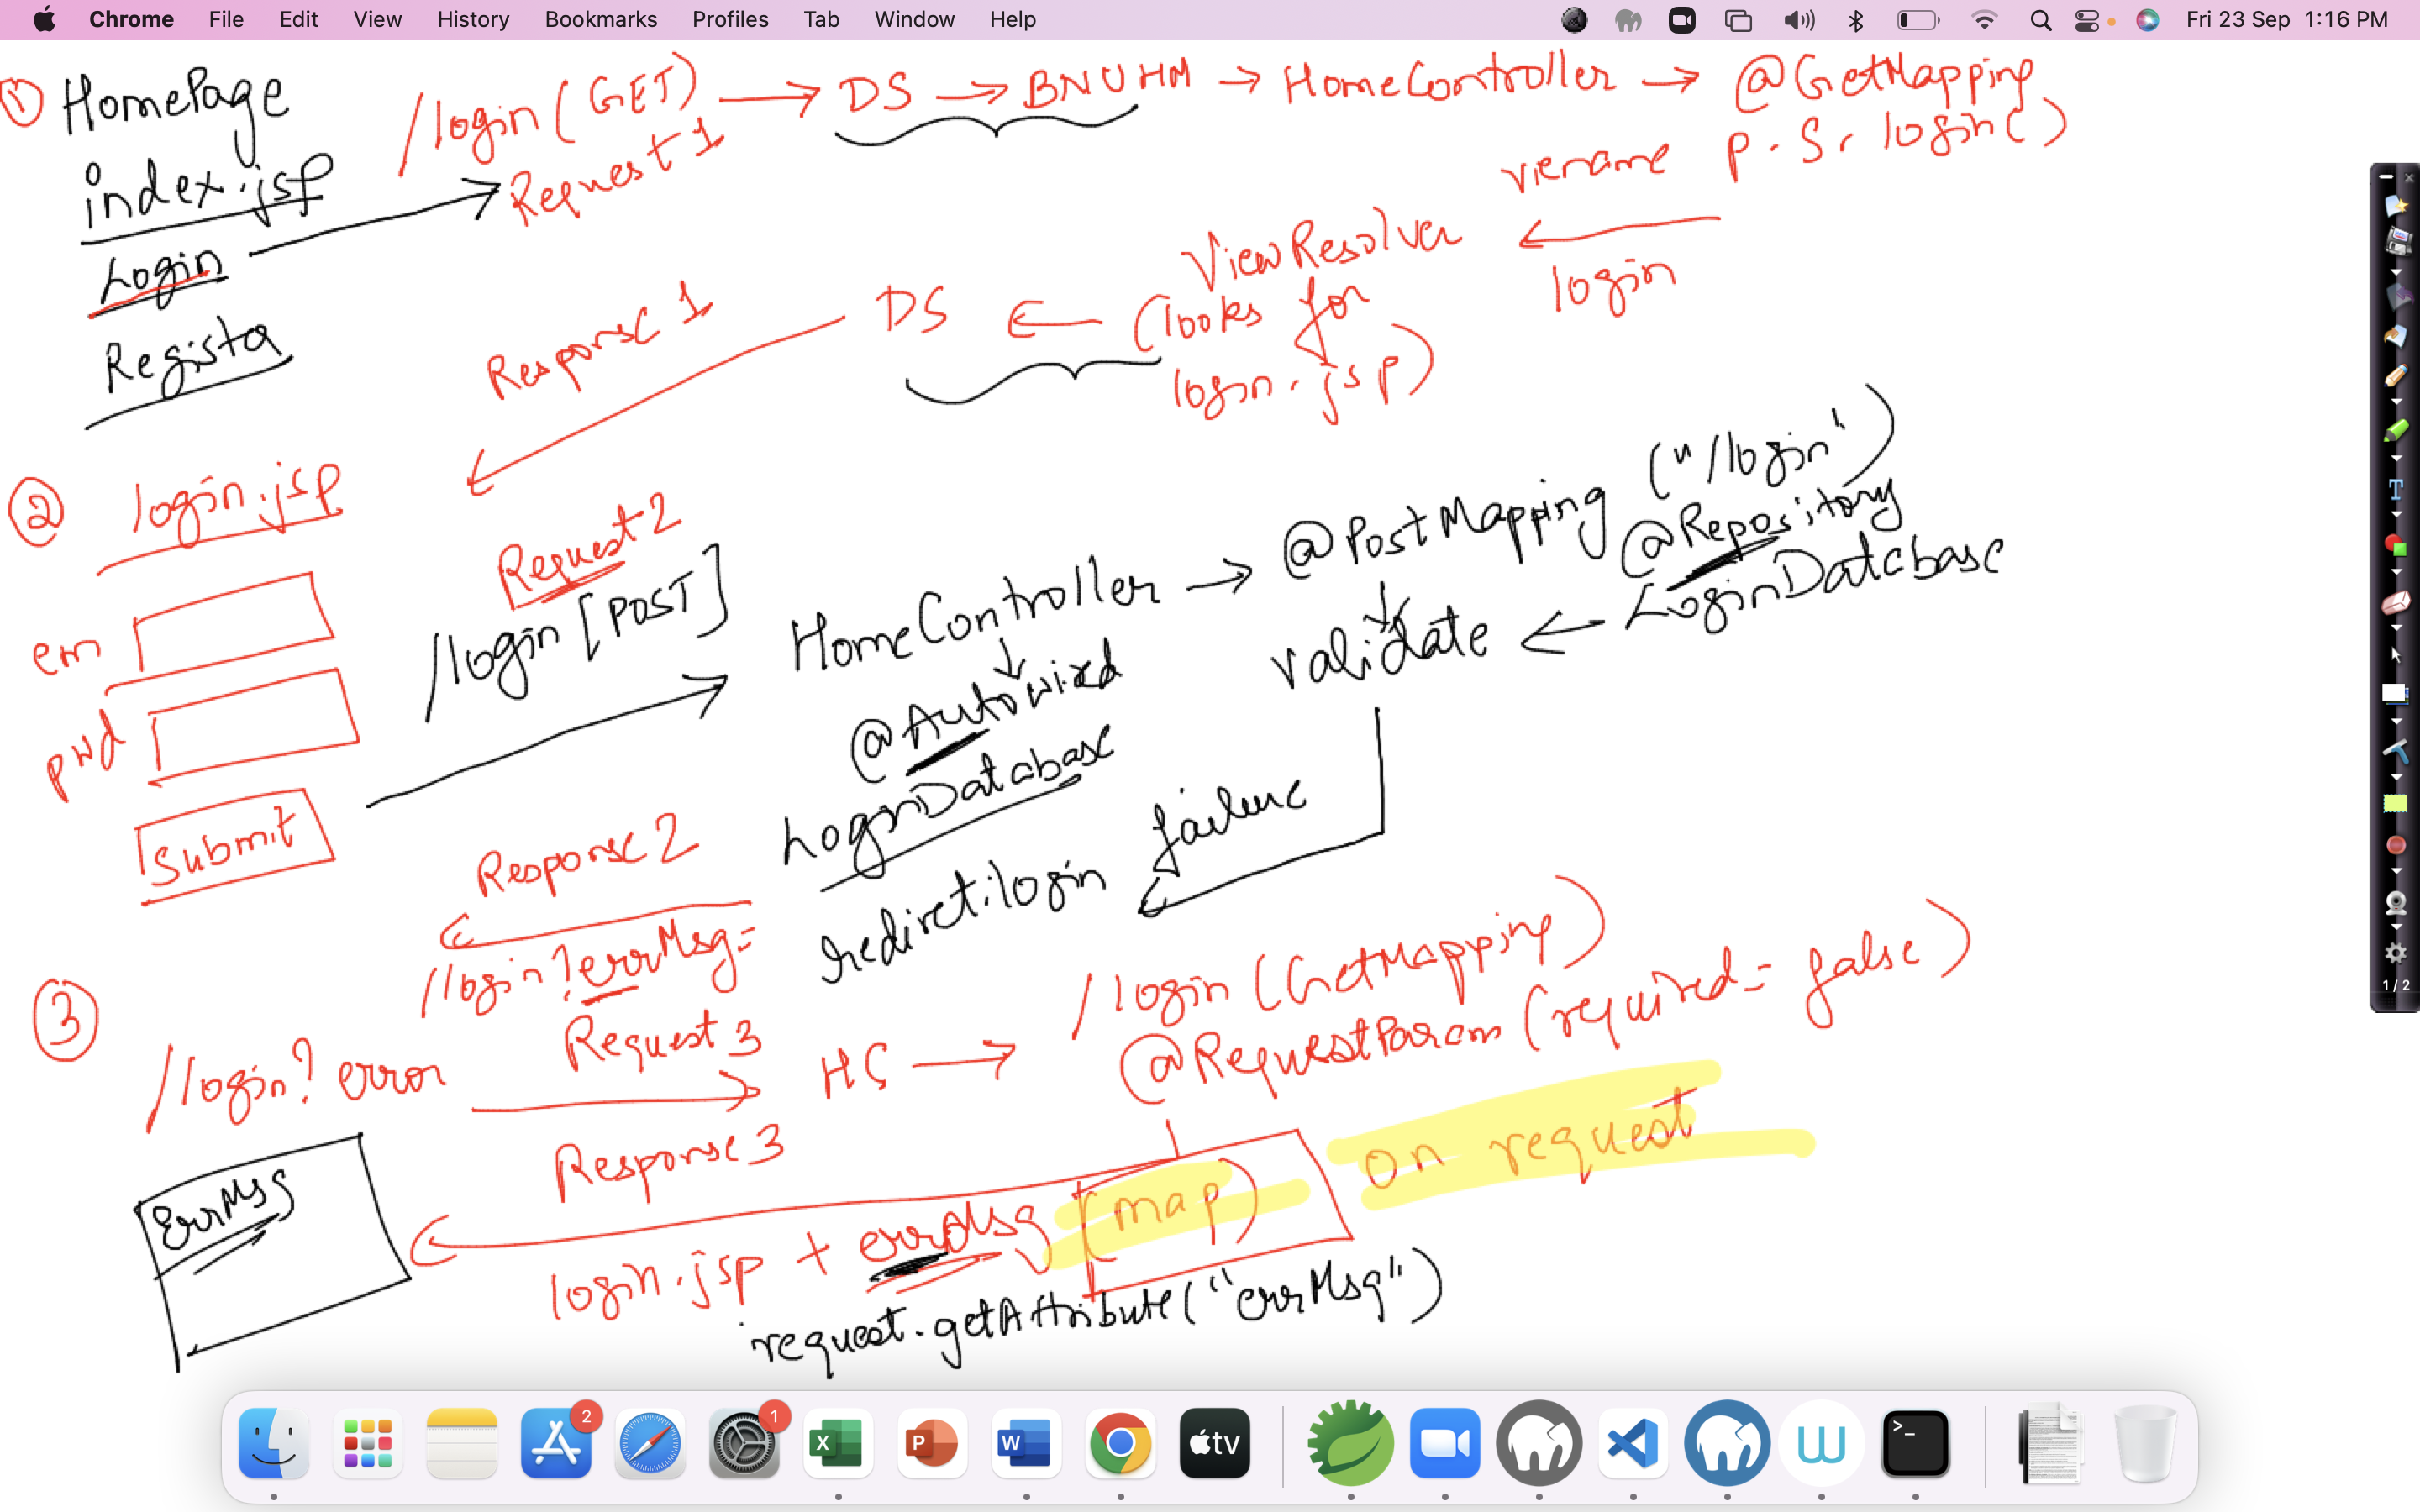 Chrome File Edit View History Bookmarks Profiles Tab Window Help Fri 23 Sep 1:16 PM
① HomePage
index.jsp
Login
Register
/login (GET) → DS → BNUHM → HomeController → @GetMapping
Request 1
p.S. login()
viename
login
ViewResolver
(looks for
login.jsp)
DS
Response 1
② login.jsp
em
pwd
Submit
Request 2
/login [POST]
HomeController → @PostMapping ("/login")
@Autowired
LoginDatabase
validate ← @Repository
LoginDatabase
failure
redirect:login
Response 2
/login?errMsg=
③ /login? error
Request 3
HC → /login (GetMapping)
@RequestParam (required = false)
Response 3
login.jsp + errMsg (map) on request
request.getAttribute("errMsg")
ErrMsg
1/2
T
2
1
X
P
W
tv
W
>_